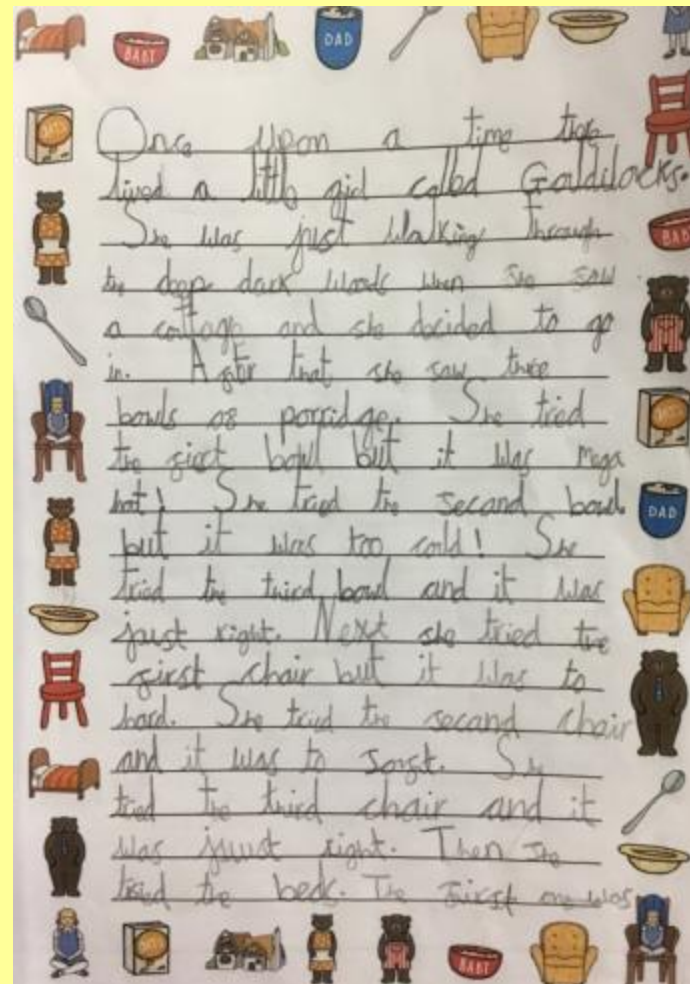 DAD
BABY
Once upon a time there
lived a little girl called Goldilocks.
She was just walking through
the deep dark woods when she saw
a cottage and she decided to go
in. After that she saw three
bowls of porridge. She tried
the first bowl but it was mega
hot! She tried the second bowl
but it was too cold! She
tried the third bowl and it was
just right. Next she tried the
first chair but it was to
hard. She tried the second chair
and it was to soft. She
tried the third chair and it
was juust right. Then she
tried the beds. The first one was
BABY
DAD
BABY